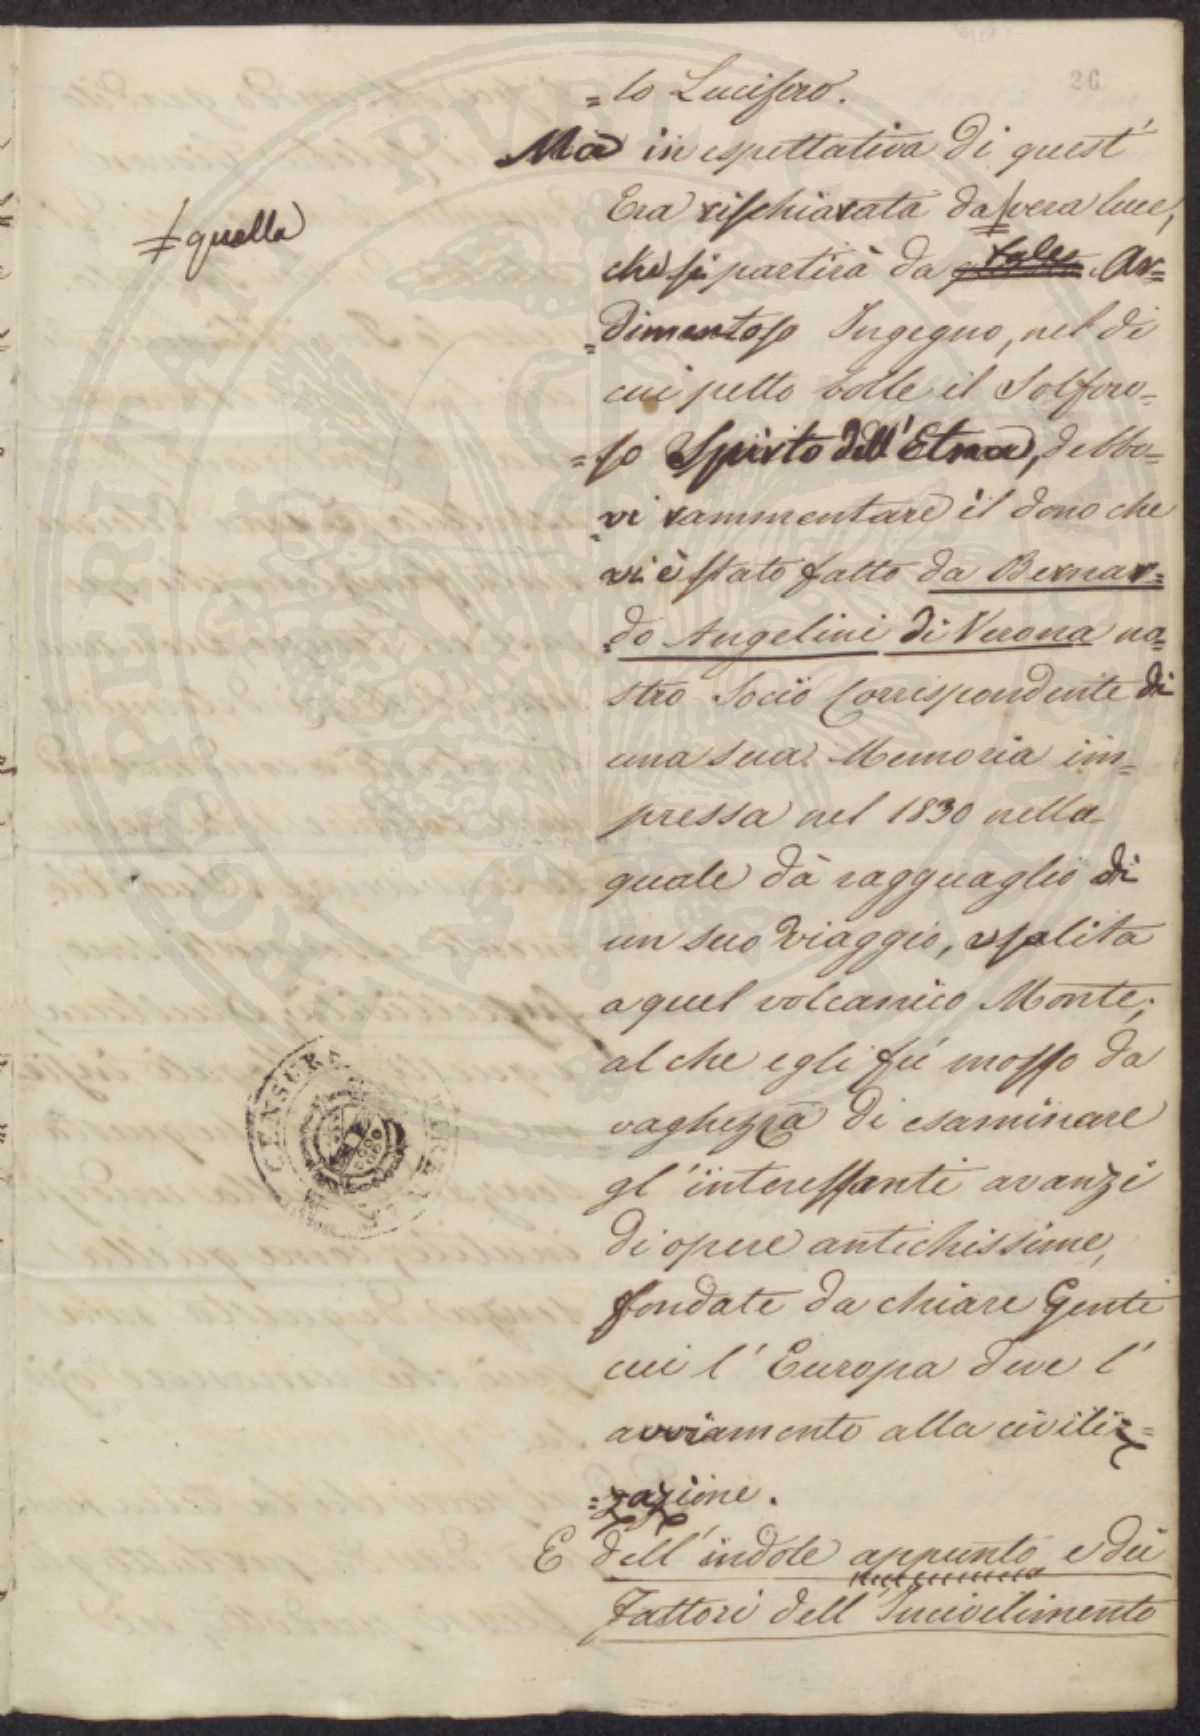 26
=lo Lucifero.
Ma in espettativa di quest'
Era rischiarata da ≠ vera luce,
≠ quella
che si partirà da tale Ar=
=dimentoso Ingegno, nel di
cui petto bolle il Solforo=
=so Spirto dell'Etna, debbo=
vi rammentare il dono che
vi è stato fatto da Bernar=
do Angelini di Verona no=
stro Socio Corrispondente di
una sua Memoria im=
pressa nel 1830 nella
quale dà ragguaglio di
un suo viaggio, e salita
a quel volcanico Monte;
al che egli fù mosso da
vaghezza di esaminare
gl'interessanti avanzi
di opere antichissime,
fondate da chiare Genti
cui l'Europa deve l'
avviamento alla civiliz=
=zazione.
E dell'indole appunto e dei
Fattori dell'Incivilimento
CENSURA
PROSPERITATI PVBLICAE